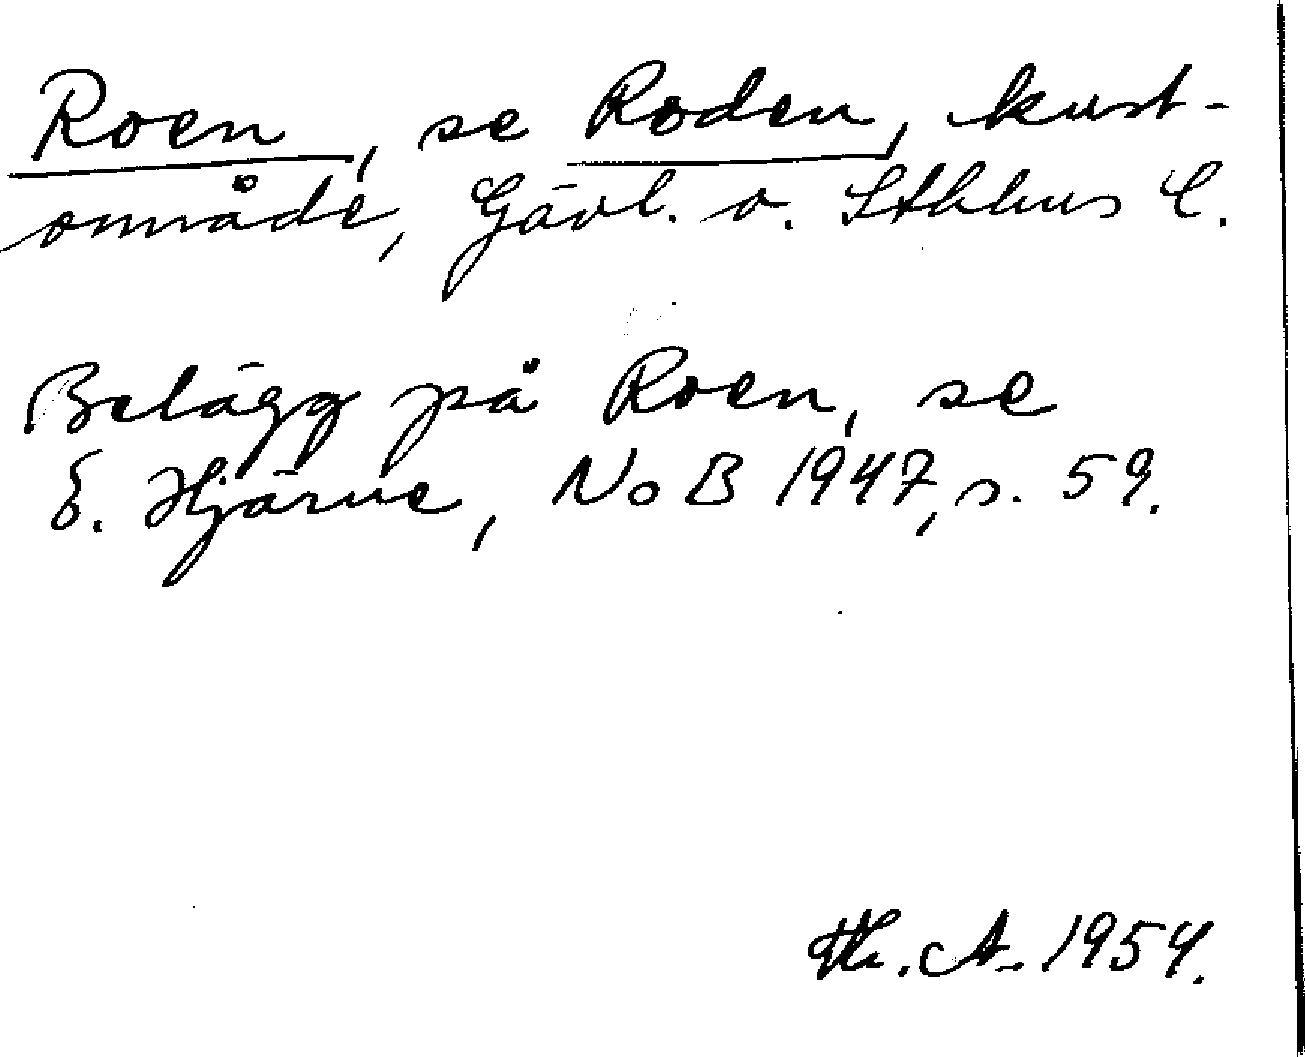 Roen, se Roden, kust-
område, Gävl. o. Sthlms l.
Belägg på Roen, se
E. Hjärne, NoB 1947, s. 59.
Th. A. 1954.